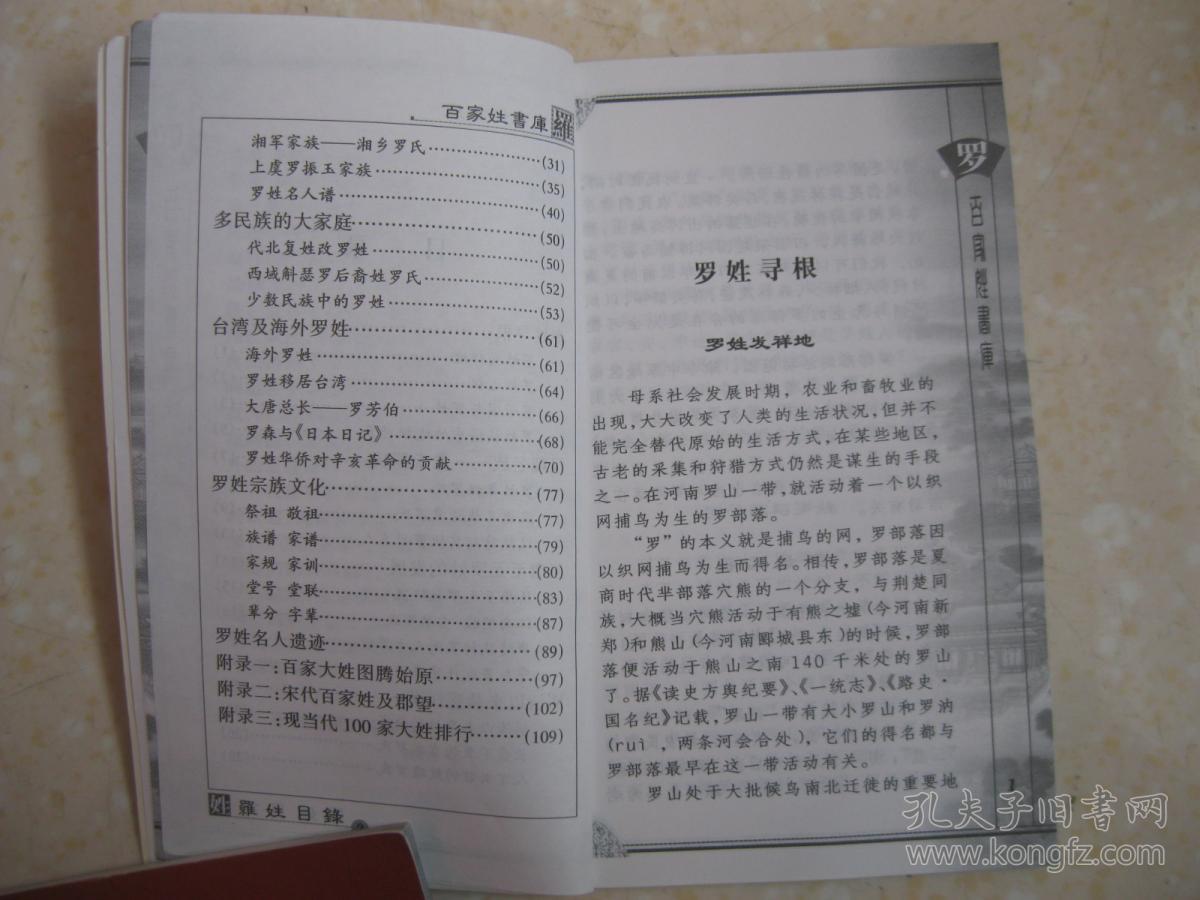 百家姓書庫 羅
湘军家族——湘乡罗氏………………(31)
上虞罗振玉家族………………(35)
罗姓名人谱………………(40)
多民族的大家庭………………(50)
代北复姓改罗姓………………(50)
西域斛瑟罗后裔姓罗氏………………(52)
少数民族中的罗姓………………(53)
台湾及海外罗姓………………(61)
海外罗姓………………(61)
罗姓移居台湾………………(64)
大唐总长——罗芳伯………………(66)
罗森与《日本日记》………………(68)
罗姓华侨对辛亥革命的贡献………(70)
罗姓宗族文化………………(77)
祭祖 敬祖………………(77)
族谱 家谱………………(79)
家规 家训………………(80)
堂号 堂联………………(83)
辈分 字辈………………(87)
罗姓名人遗迹………………(89)
附录一:百家大姓图腾始原………(97)
附录二:宋代百家姓及郡望………(102)
附录三:现当代100家大姓排行……(109)
姓 羅姓目錄
罗
百家姓書庫
罗姓寻根
罗姓发祥地
母系社会发展时期，农业和畜牧业的
出现，大大改变了人类的生活状况，但并不
能完全替代原始的生活方式，在某些地区，
古老的采集和狩猎方式仍然是谋生的手段
之一。在河南罗山一带，就活动着一个以织
网捕鸟为生的罗部落。
“罗”的本义就是捕鸟的网，罗部落因
以织网捕鸟为生而得名。相传，罗部落是夏
商时代芈部落穴熊的一个分支，与荆楚同
族，大概当穴熊活动于有熊之墟(今河南新
郑)和熊山(今河南郾城县东)的时候，罗部
落便活动于熊山之南140千米处的罗山
了。据《读史方舆纪要》、《一统志》、《路史·
国名纪》记载，罗山一带有大小罗山和罗汭
(ruì，两条河会合处)，它们的得名都与
罗部落最早在这一带活动有关。
罗山处于大批候鸟南北迁徙的重要地
1
孔夫子旧书网
www.kongfz.com